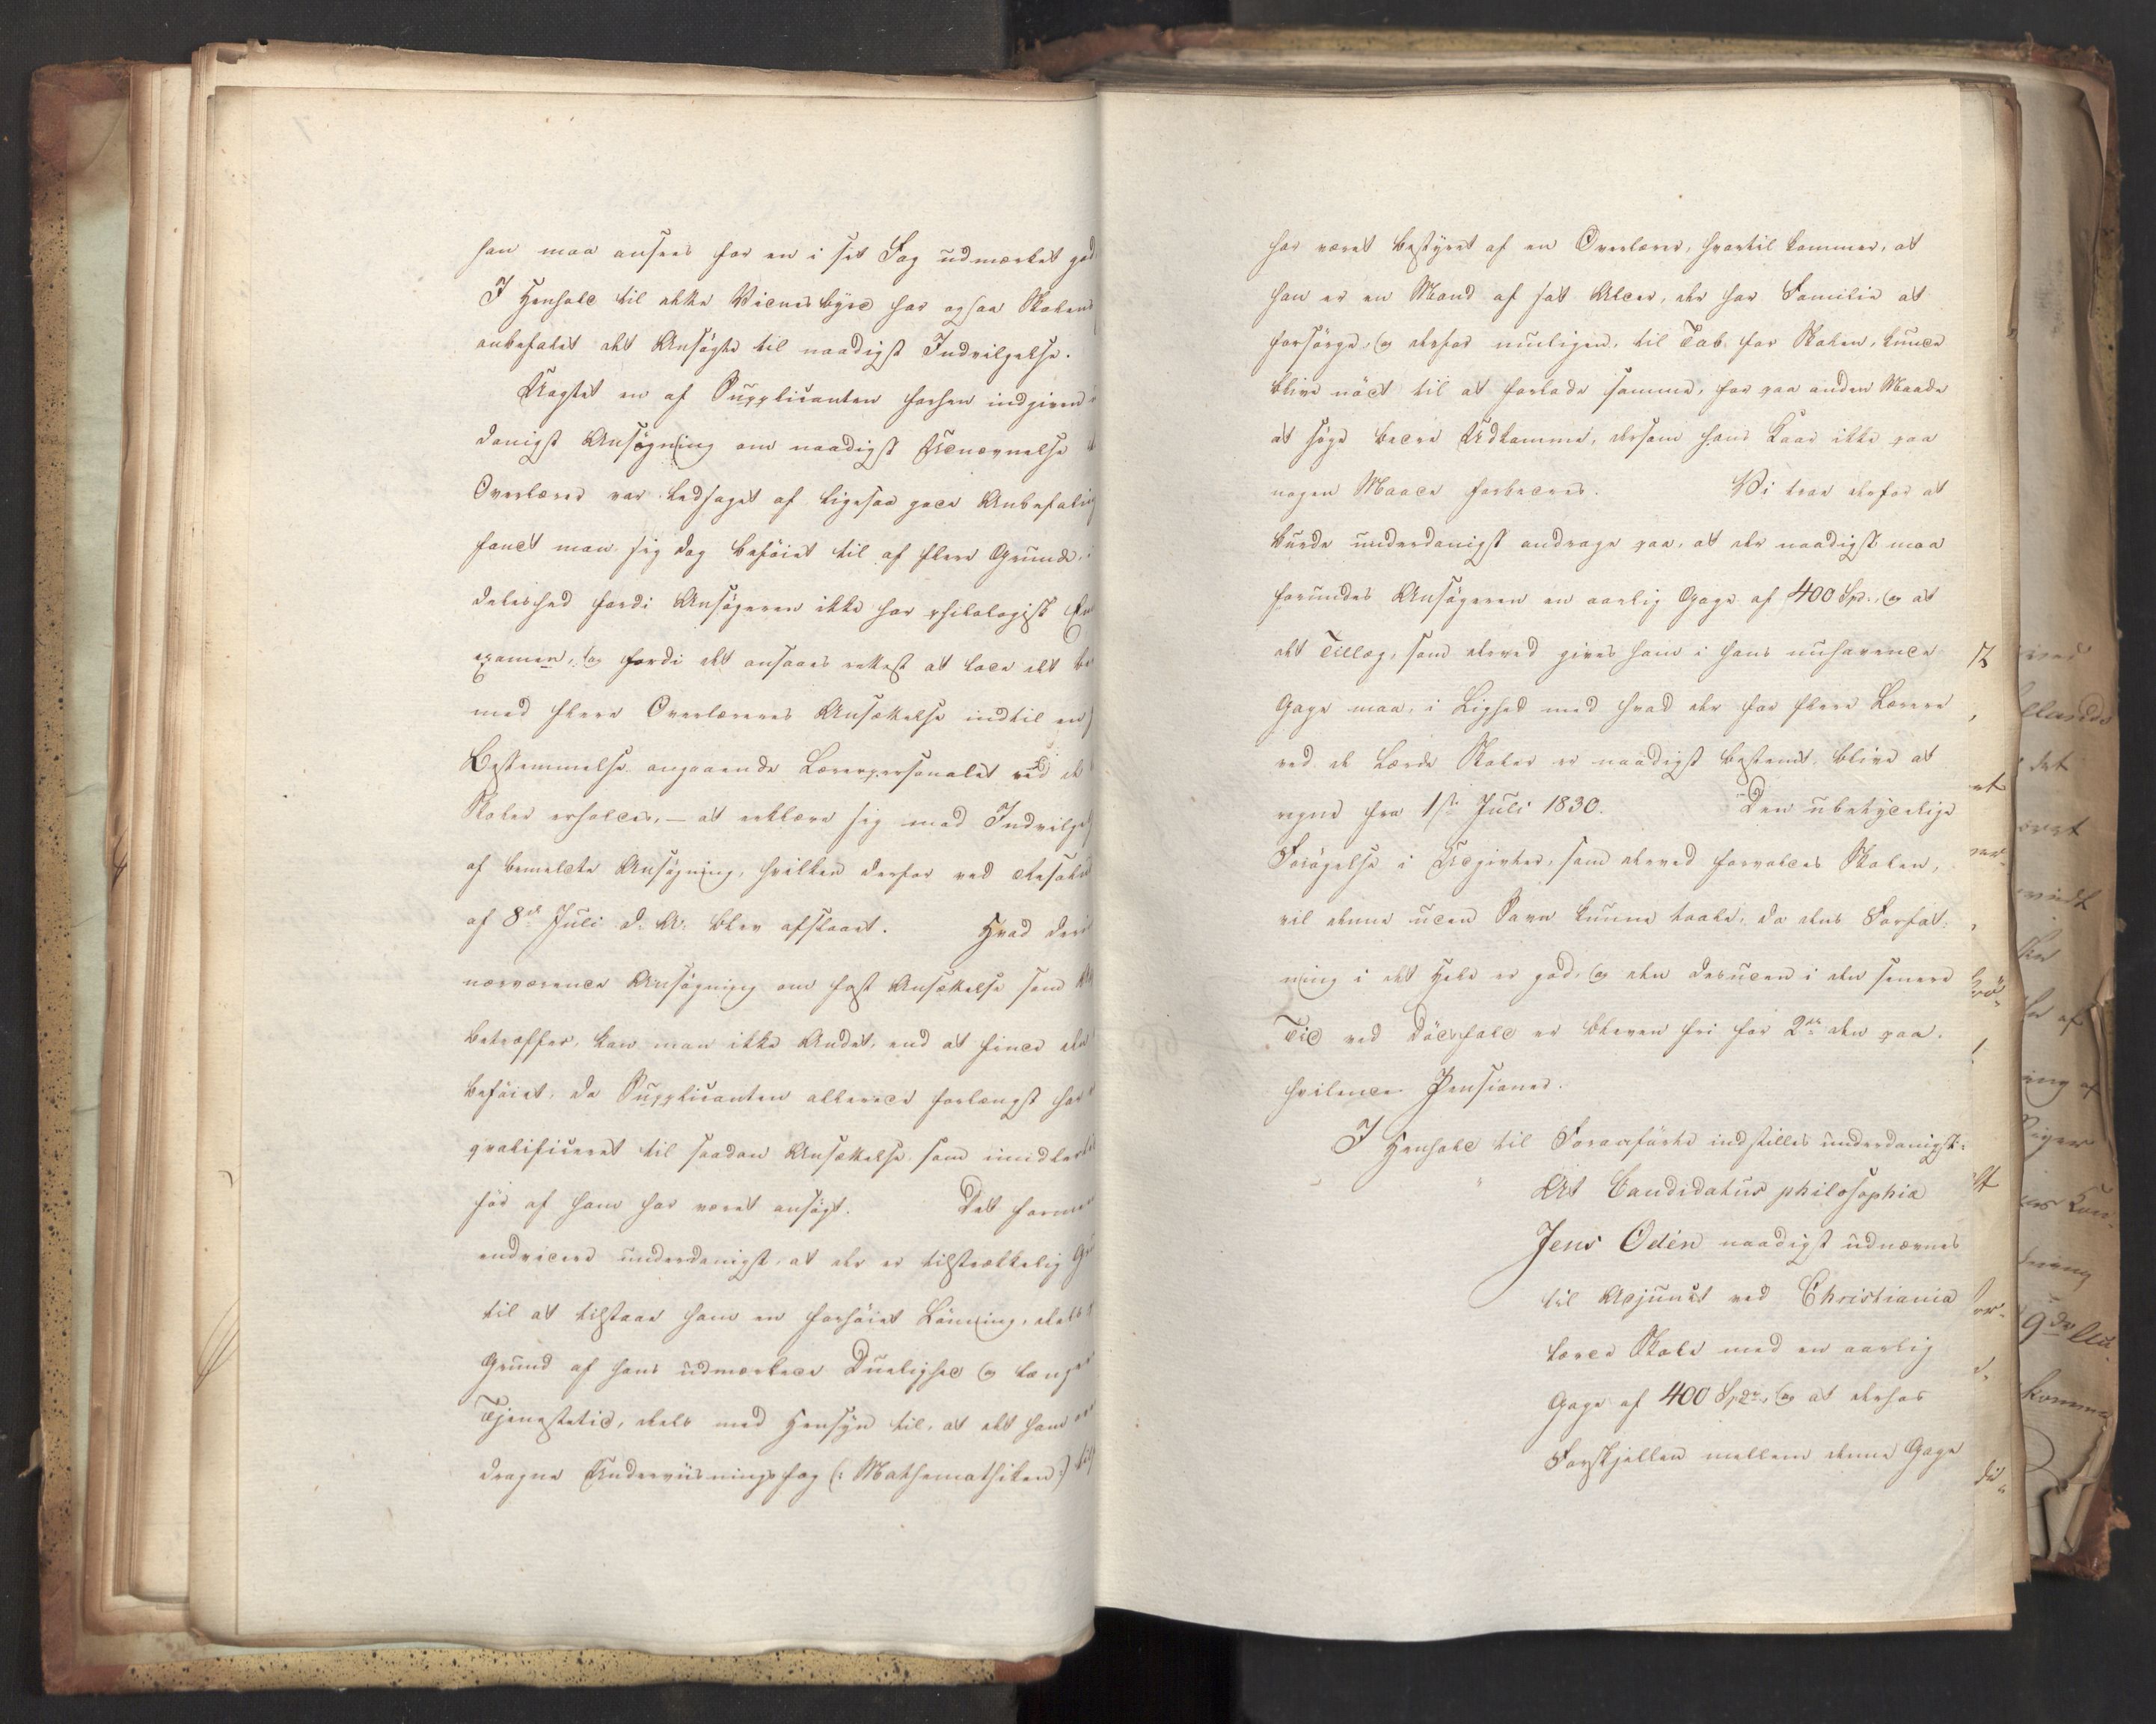 han maa ansees for en i sit Fag udmærket god
I Henhold til dette Vidnesbyrd har ogsaa Skolens
anbefalet det Ansøgte til naadigst Indvilgelse.
Uagtet en af Supplicanten forhen indgiven
danigst Ansøgning om naadigst Udnævnelse
Overlærer var ledsaget af ligesaa gode Anbefaling
fandt man sig dog beføiet til af flere Grunde,
deleshed fordi Ansøgeren ikke har philologisk Em
examen, og fordi det ansaaes rettest at lade det be
med flere Overlæreres Ansættelse indtil en
Bestemmelse angaaende Lærerpersonalet ved de
Skoler erholdes, – at erklære sig mod Indvilgel
af bemeldte Ansøgning, hvilken derfor ved Resolut
af 8de Juli d. A. blev afslaaet. Hvad deri
nærværende Ansøgning om fast Ansættelse som
betræffer, kan man ikke Andet, end at finde den
beføiet, da Supplicanten allerede forlængst har
qvalificeret til saadan Ansættelse, som imidlertid
før af ham har været ansøgt. Det formen
endvidere underdanigst, at der er tilstrækkelig Gru
til at tilstaae ham en forhøiet Lønning, deels
Grund af hans udmærkede Duelighed og lang
Tjenestetid, deels med Hensyn til, at det ham over
dragne Underviisningsfag (: Mathematiken :)
har været bestyret af en Overlærer, hvortil kommer, at
han er en Mand af sat Alder, der har Familie at
forsørge, og derfor muligen, til Tab for Skolen, kunde
blive nødt til at forlade samme, for paa anden Maade
at søge bedre Udkomme, dersom hans Kaar ikke paa
nogen Maade forbedres. Vi troe derfor at
burde underdanigst andrage paa, at der naadigst maa
forundes Ansøgeren en aarlig Gage af 400 Spd., og at
det Tillæg, som derved gives ham i hans nuhavende
Gage maa, i Lighed med hvad der for flere Lærere
ved de lærde Skoler er naadigst bestemt, blive at
regne fra 1ste Juli 1830. Den ubetydelige
Forøgelse i Udgivter, som derved forvoldes Skolen,
vil denne uden Savn kunne taale, da dens Forfat-
ning i det Hele er god, og den desuden i den senere
Tid ved Dødsfald er bleven fri for 2de den paa-
hvilende Pensioner.
I Henhold til Foranførte indstilles underdanigst:
At Candidatus philosophia
Jens Odén naadigst udnævnes
til Adjunct ved Christiania
lærde Skole med en aarlig
Gage af 400 Spdr., og at derhos
Forskjellen mellem denne Gage